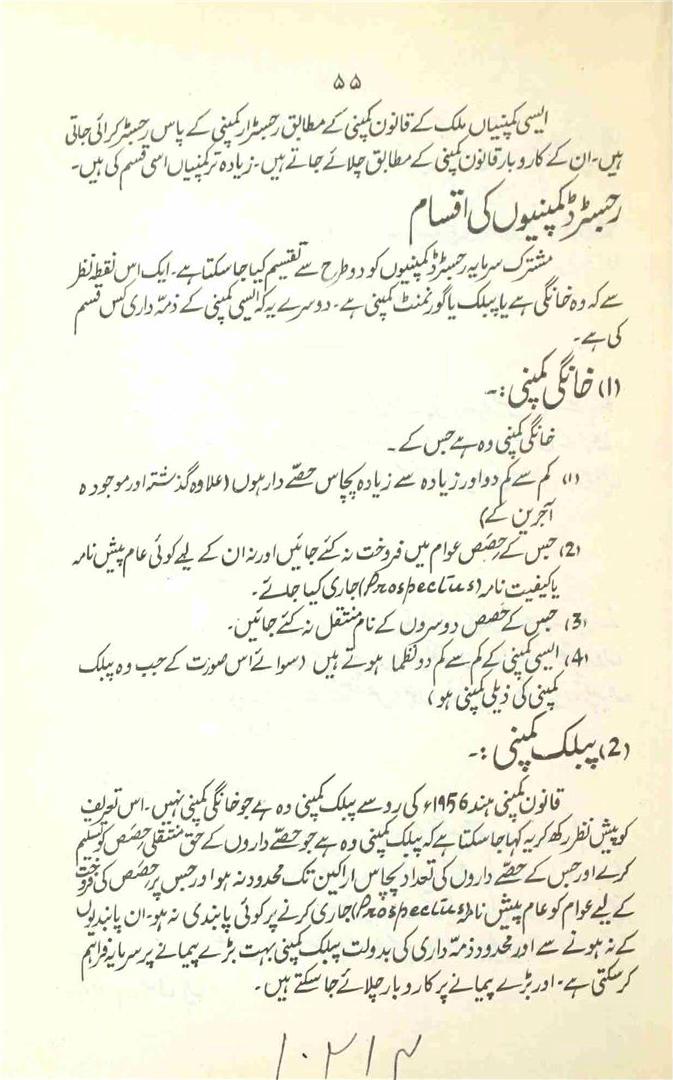 ۵۵
ایسی کمپنیاں ملک کے قانون کمپنی کے مطابق رجسٹرار کمپنی کے پاس رجسٹر کرائی جاتی
ہیں۔ ان کے کاروبار قانون کمپنی کے مطابق چلائے جاتے ہیں۔ زیادہ تر کمپنیاں اسی قسم کی ہیں۔
رجسٹرڈ کمپنیوں کی اقسام
مشترک سرمایہ رجسٹرڈ کمپنیوں کو دو طرح سے تقسیم کیا جا سکتا ہے۔ ایک اس نقطۂ نظر
سے کہ وہ خانگی ہے یا پبلک یا گورنمنٹ کمپنی ہے۔ دوسرے یہ کہ ایسی کمپنی کے ذمہّ داری کس قسم
کی ہے۔
(۱) خانگی کمپنی :۔
خانگی کمپنی وہ ہے جس کے۔
(۱) کم سے کم دو اور زیادہ سے زیادہ پچاس حصّے دار ہوں (علاوہ گذشتہ اور موجودہ
آجرین کے)
(2) جس کے حِصَص عوام میں فروخت نہ کئے جائیں اور نہ ان کے لیے کوئی عام پیش نامہ
یا کیفیت نامہ (Prospectus) جاری کیا جائے۔
(3) جس کے حَصص دوسروں کے نام منتقل نہ کئے جائیں۔
(4) ایسی کمپنی کے کم سے کم دو نظما ہوتے ہیں (سوائے اس صورت کے جب وہ پبلک
کمپنی کی ذیلی کمپنی ہو)
(2) پبلک کمپنی :۔
قانون کمپنی ہند 1956ء کی رو سے پبلک کمپنی وہ ہے جو خانگی کمپنی نہیں۔ اس تعریف
کو پیش نظر رکھ کر یہ کہا جا سکتا ہے کہ پبلک کمپنی وہ ہے جو حصّے داروں کے حق منتقلی حِصَص کو تسلیم
کرے اور جس کے حصّے داروں کی تعداد پچاس اراکین تک محدود نہ ہو اور جس پر حصص کی فروخت
کے لیے عوام کو عام پیش نامہ (Prospectus) جاری کرنے پر کوئی پابندی نہ ہو۔ ان پابندیوں
کے نہ ہونے سے اور محدود ذمہّ داری کی بدولت پبلک کمپنی بہت بڑے پیمانے پر سرمایہ فراہم
کر سکتی ہے۔ اور بڑے پیمانے پر کاروبار چلائے جا سکتے ہیں۔